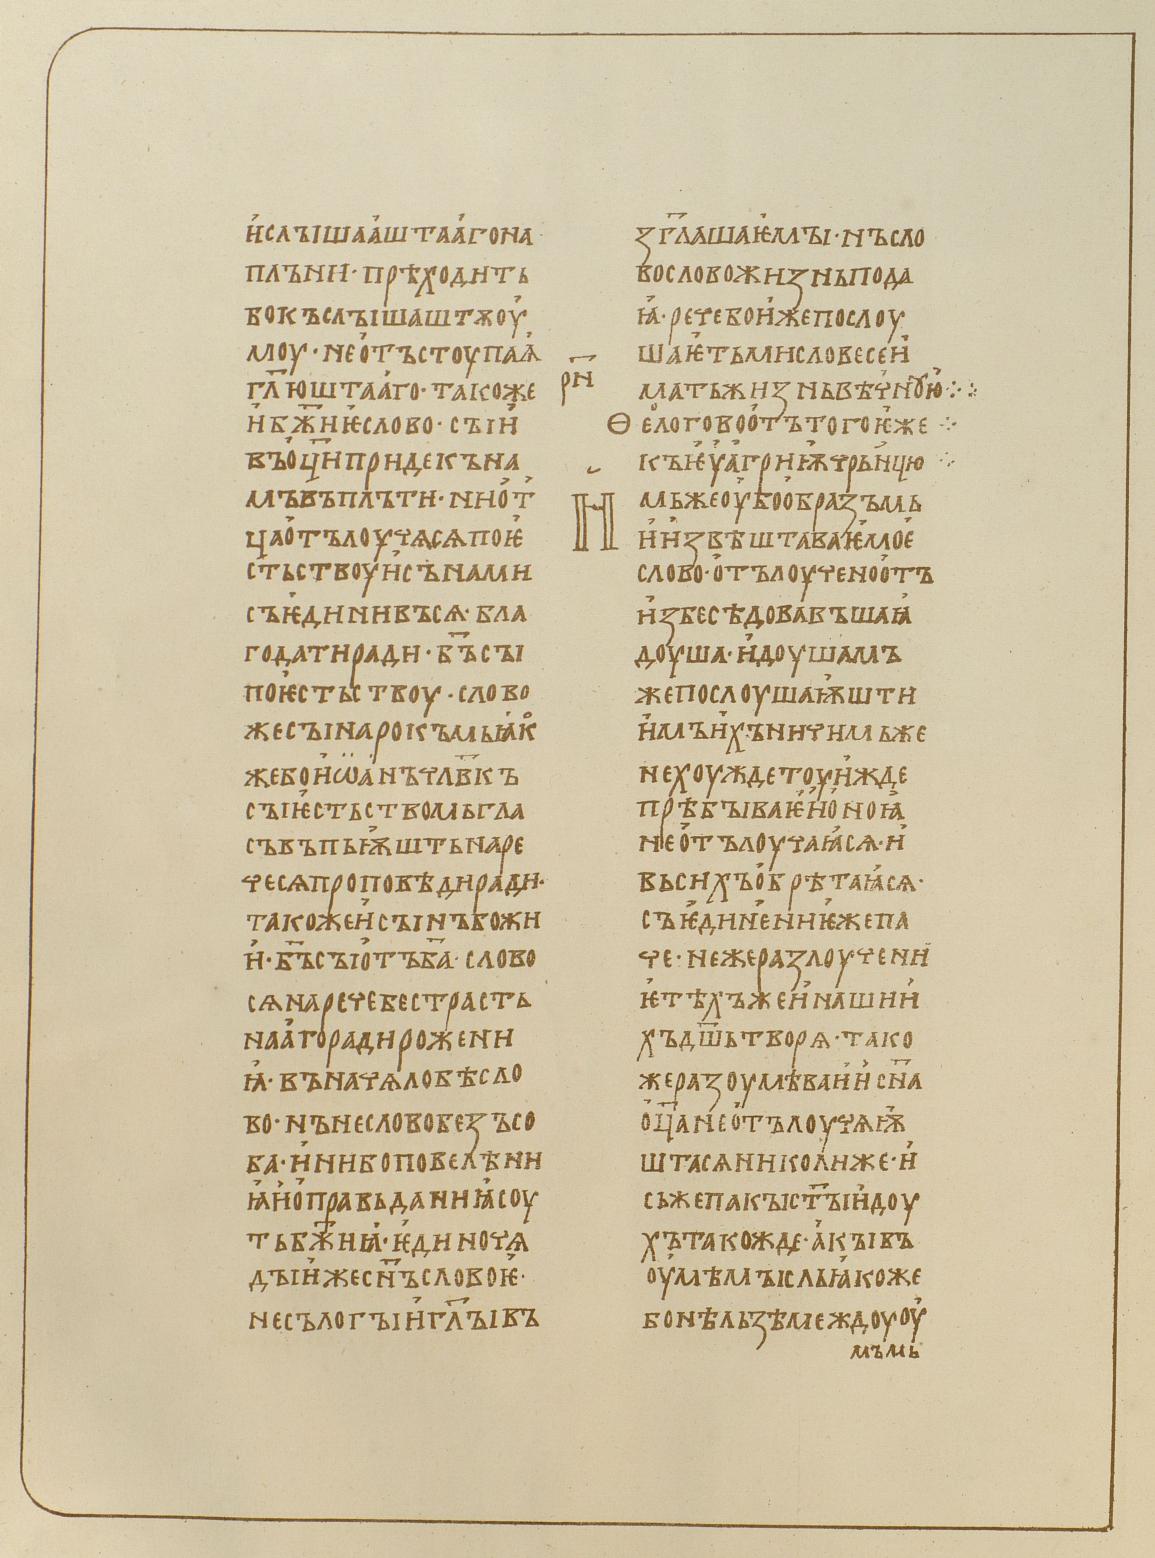 и҆слꙑшаа҆штаа҆гона
плъни· прѣходить
бокъслꙑшаштѫоу҆
моу· нео҆тъстоупаꙗ҆
гл҃юштаа҆го· такоже
и҆бж҃иѥслово· сꙑи҆
въоц҃ипридекъна
мъвъплъти· нио҆т҃
цао҆тълоучѧсѧпоѥ҆
стьствоуи҆сънами
съѥ҆динивъсѧ· бла
годатиради· б҃ъсꙑ
поѥ҆стьствоу· слово
жесꙑнарокъмьꙗ҆к
жебои҆ѡ҆а҆нъчл҃вкъ
сꙑѥ҆стьствомьгла
съвъпьѭ҆штьнаре
чесѧпроповѣдиради·
такожеи҆сꙑнъбожи
и҆· б҃ъсꙑо҆тъб҃а· слово
сѧнаречебестрасть
наа҆горадирожени
ꙗ҆· въначѧлобѣсло
во· нънесловобезъсо
ба· и҆нибоповелѣни
ꙗ҆ио҆правьданиꙗ҆соу
тьбж҃иꙗ҆· ѥ҆диночѧ
дꙑи҆жесн҃ъсловоѥ҆·
несълогꙑи҆гл҃ꙑвъ
зг҃лашаѥ҆мꙑ· нъсло
вословожизньпода
ꙗ҆· речебои҆жепослоу
шаѥ҆тьмисловесеи҆
матьжизньвѣчноую҆
рн҃
Ѳео҆логовоо҆тътогоѥ҆же
къѥ҆у҆а҆гриѭ҆чрьньцю
Имьжеоу҆боо҆бразъмь
и҆и҆звѣштаваѥ҆мое҆
слово· о҆тълоученоо҆тъ
и҆збесѣдовавъшаꙗ҆
доуша· и҆доушамъ
жепослоушаѭ҆шти
и҆мъи҆хъничимьже
нехоуждетоуи҆жде
прѣбꙑваѥ҆и҆о҆ноꙗ҆
нео҆тълоучаꙗ҆сѧ· и҆
вьсихъо҆брѣтаꙗ҆сѧ·
съѥ҆динениѥ҆жепа
че· нежеразлоучени
ѥ҆тѣхъжеи҆нашии҆
хъдш҃ьтворѧ· тако
жеразоумѣваи҆и҆сн҃а
о҆ц҃анео҆тълоучѧѭ҆
штасѧниколиже· и҆
сьжепакꙑст҃ꙑи҆доу
хътакожде· а҆кꙑвъ
оу҆мѣмꙑсльꙗ҆коже
бонѣльзѣмеждоуоу҆
мъмь